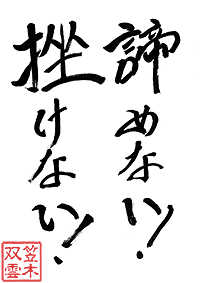 諦めない!
挫けない!
笠木
双雲